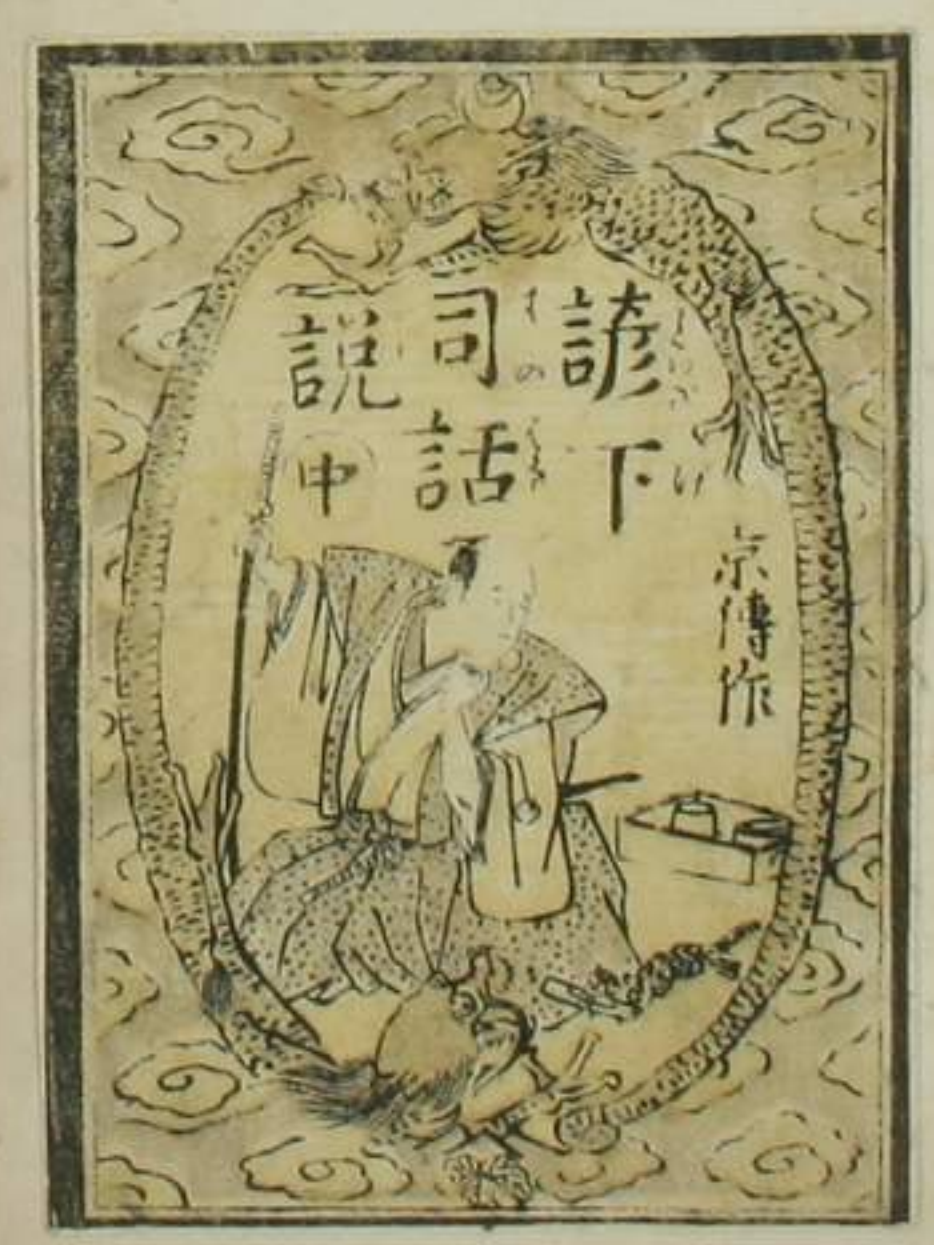 諺下
司話
すの
説中
京傳作